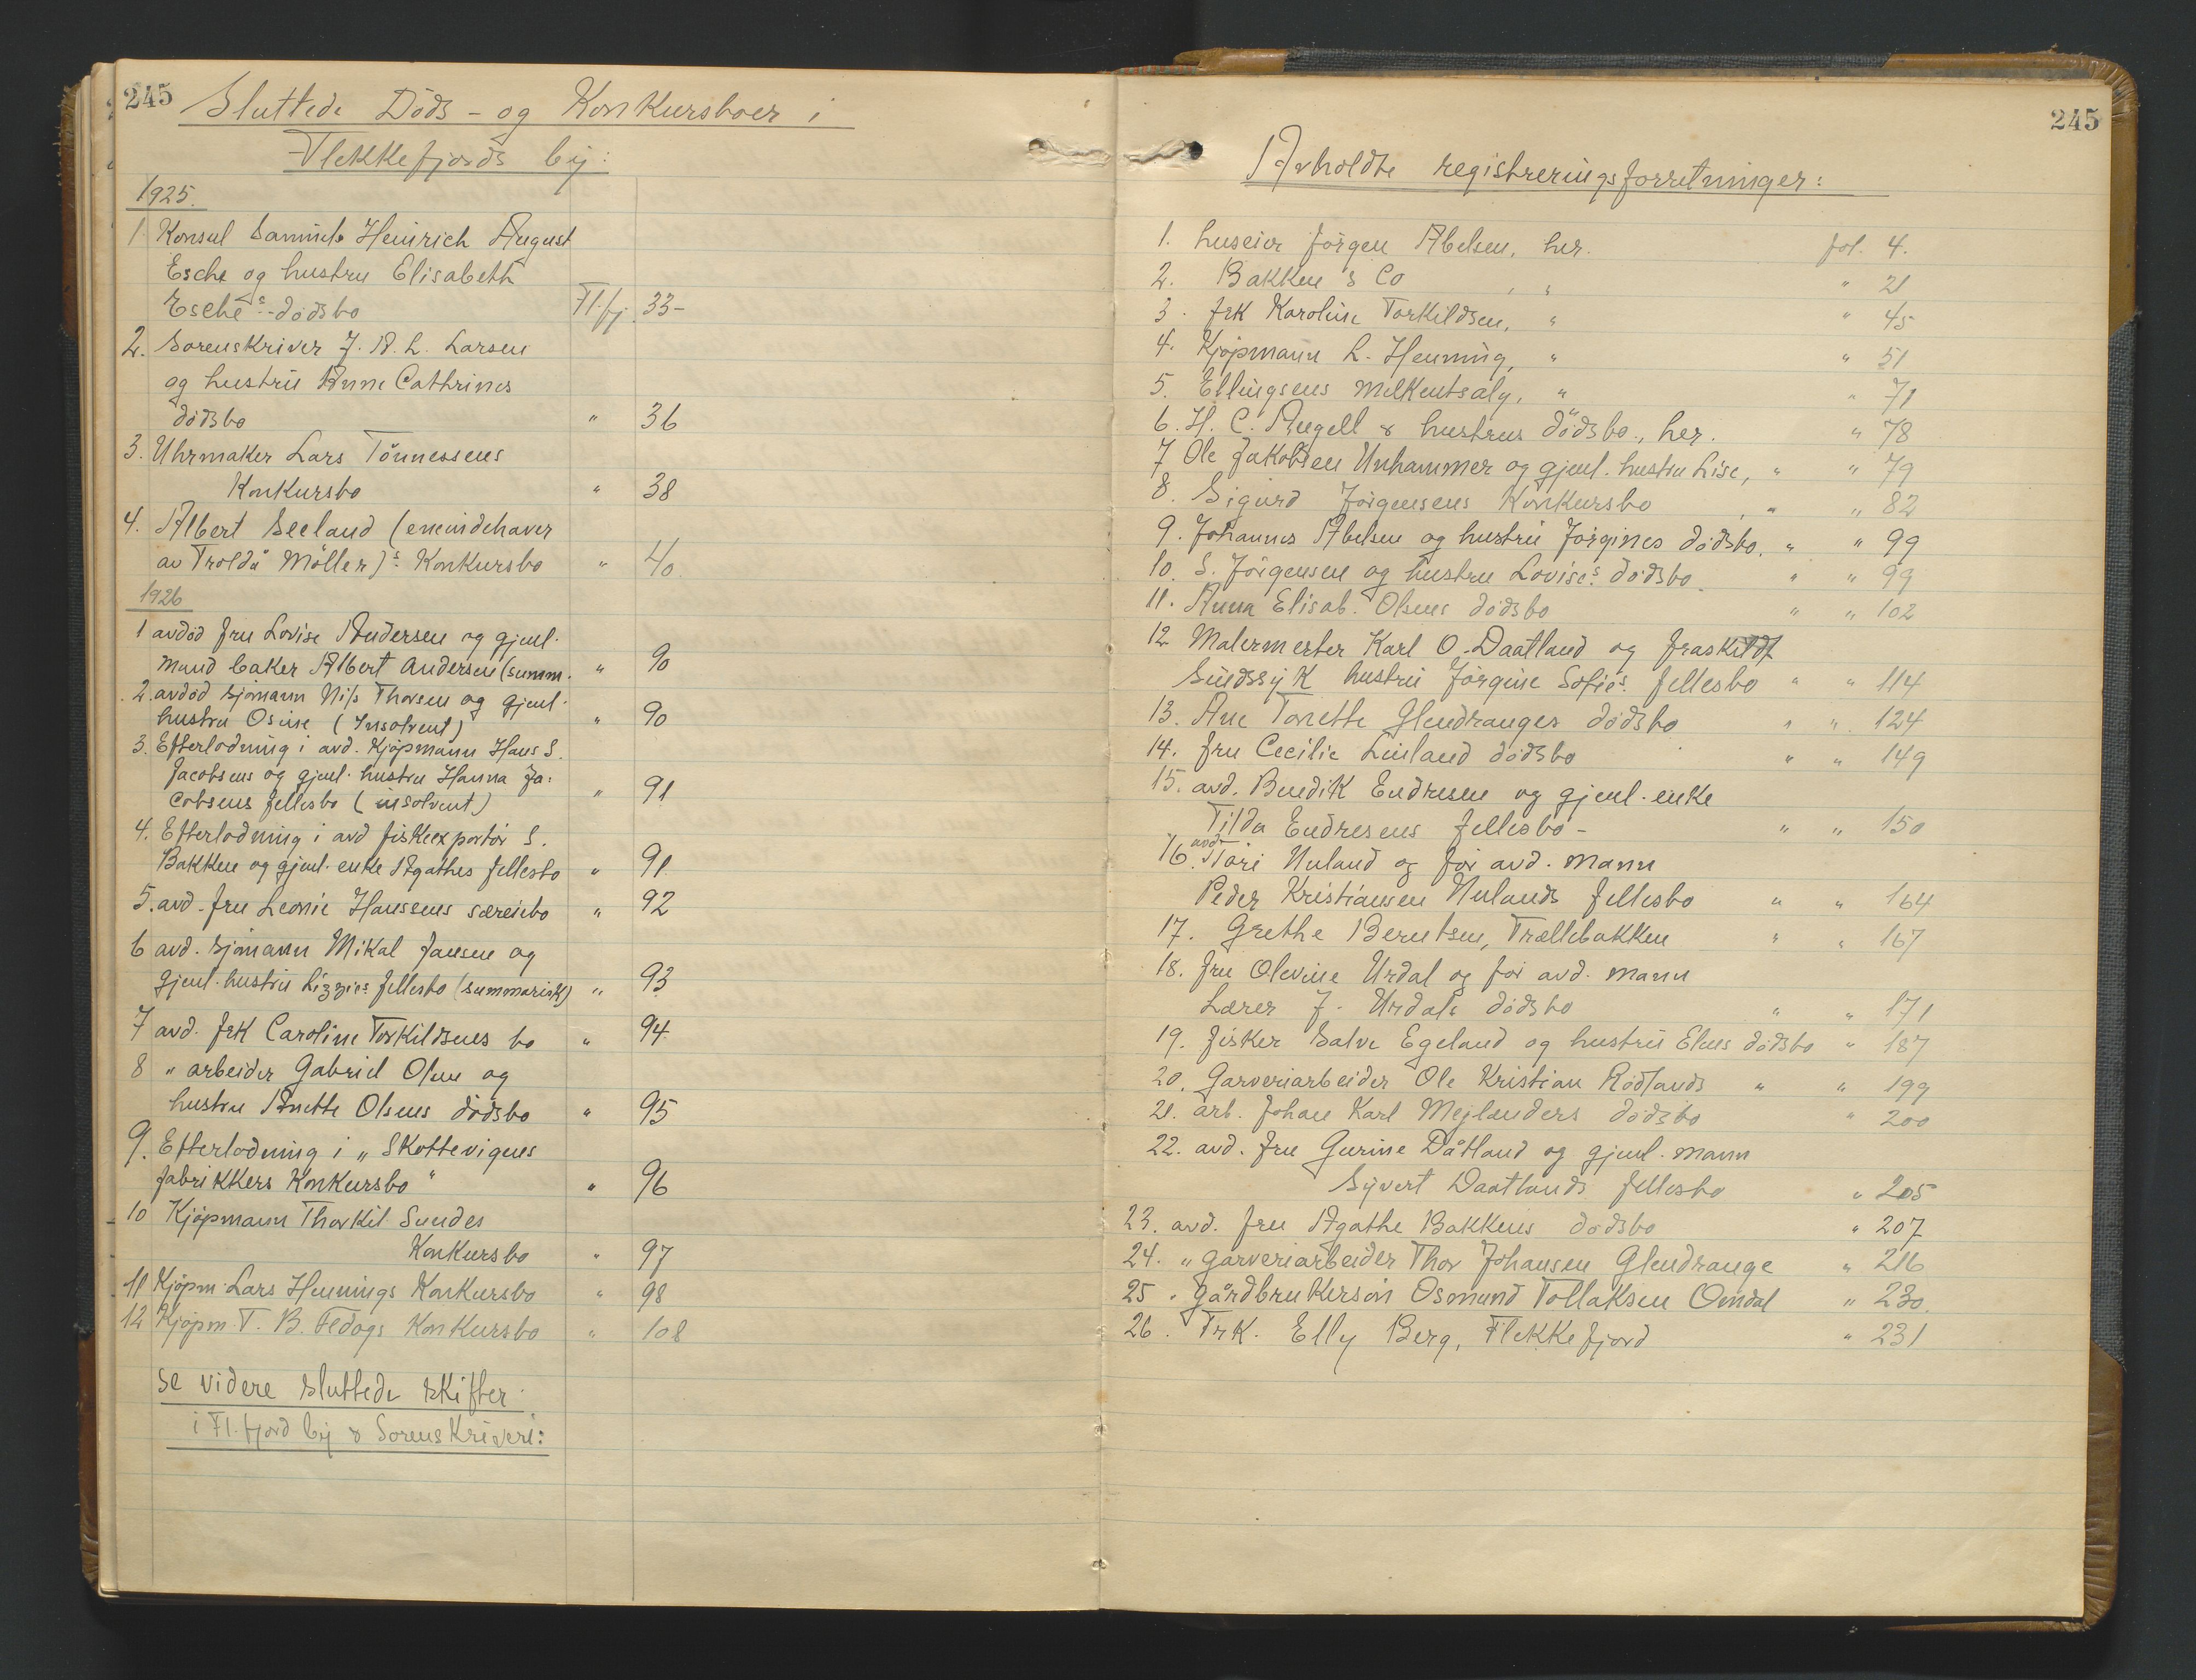 245
Sluttede Døds- og Konkursboer i
Flekkefjords by:
1925.
1 Konsul Samuels Heinrich August
Esche og hustru Elisabeth
Esche's-dødsbo Fl.fj. 33-
2. Sorenskriver J. A. L. Larsen
og hustru Anne Cathrines
dødsbo " 36
3. Uhrmaker Lars Tönnessens
Konkursbo " 38
4. Albert Seeland (eneindehaver
av Troldå Möller)s: Konkursbo " 40.
1926
1 avdød fru Lovise Andersen og gjenl.
mand baker Albert Andersen (summ. " 90
2. avdød sjømann Nils Thorsen og gjenl.
hustru Osine (Insolvent) " 90
3. Efterlodning i avd. Kjøpmann Hans S.
Jacobsens og gjenl. hustru Hanna Ja:
cobsens fellesbo (insolvent) " 91
4. Efterlodning i avd fiskeexportør S.
Bakken og gjenl. enke Agathes fellesbo " 91
5. avd. fru Leonie Hanssens særeiebo " 92
6 avd. sjömann Mikal Jansen og
gjenl. hustru Lizzies fellesbo (summarisk) " 93
7 avd. frk Caroline Torkildsens bo " 94
8 " arbeider Gabriel Olsen og
hustru Anette Olsens dødsbo " 95
9. Efterlodning i „Skottevigens
fabrikkers Konkursbo" " 96
10 Kjöpmann Thorkil Sundes
Konkursbo " 97
11 Kjöpm. Lars Hennings Konkursbo " 98
12 Kjøpm. T. B. Fedogs Konkursbo " 108
se videre sluttede skifter
i Fl.fjord by & Sorenskriveri:
245
Avholdte registreringsforretninger:
1. huseier Jørgen Abelsen, her. fol. 4.
2. Bakken & Co , " " 21
3. frk Karoline Torkildsen, " " 45
4. Kjøpmann L. Henning, " " 51
5. Ellingsens melkeutsalg, " " 71
6. H. C. Augell & hustrus dødsbo., her. " 78
7 Ole Jakobsen Unhammer og gjenl. hustru Lise, " " 79
8. Sigurd Jörgensens Konkursbo , " " 82
9. Johannes Abelsen og hustru Jörgines dödsbo. " " 99
10. S. Jörgensen og hustru Lovises: dødsbo. " " 99
11. Anna Elisab. Olsens dødsbo " " 102
12 Malermester Karl O. Daatland og fraskildt
sindssyk hustru Jörgine Sofies. fellesbo " " 114
13. Ane Tonette Glendranges dødsbo " " 124
14. fru Cecilie Linland dødsbo " " 149
15. avd. Bendik Endresen og gjenl. enke
Tilda Endresens fellesbo - " " 150
16. avd. Tari Nuland og før avd. mann
Peder Kristiansen Nulands fellesbo " " 164
17. Grethe Berntsen, Trællebakken " " 167
18. fru Olevine Urdal og før avd. mann
Lærer J. Urdals dødsbo " " 171
19. fisker Salve Egeland og hustru Elens dødsbo " 187
20. Garveriarbeider Ole Kristian Rødlands " " 199
21. arb. Johan Karl Mejlænders dødsbo " 200
22. avd. fru Gurine Dåtland og gjenl. mann
Syvert Daatlands fellesbo " 205
23. avd. fru Agathe Bakkens dødsbo " 207
24. " garveriarbeider Thor Johansen Glendrange " 216
25 " gårdbrukersön Osmund Tollaksen Omdal " 230.
26. Frk. Elly Berg, Flekkefjord " 231